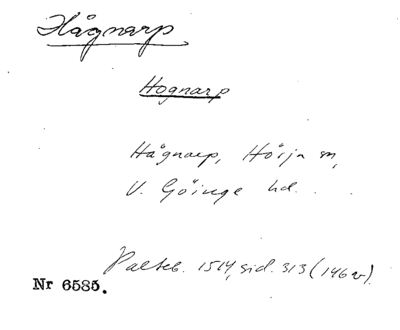 Hågnarp
Hognarp
Hågnarp, Hörja sn,
V. Göinge hd.
Palteb. 1514, sid. 313 (146 v).
Nr 6585.